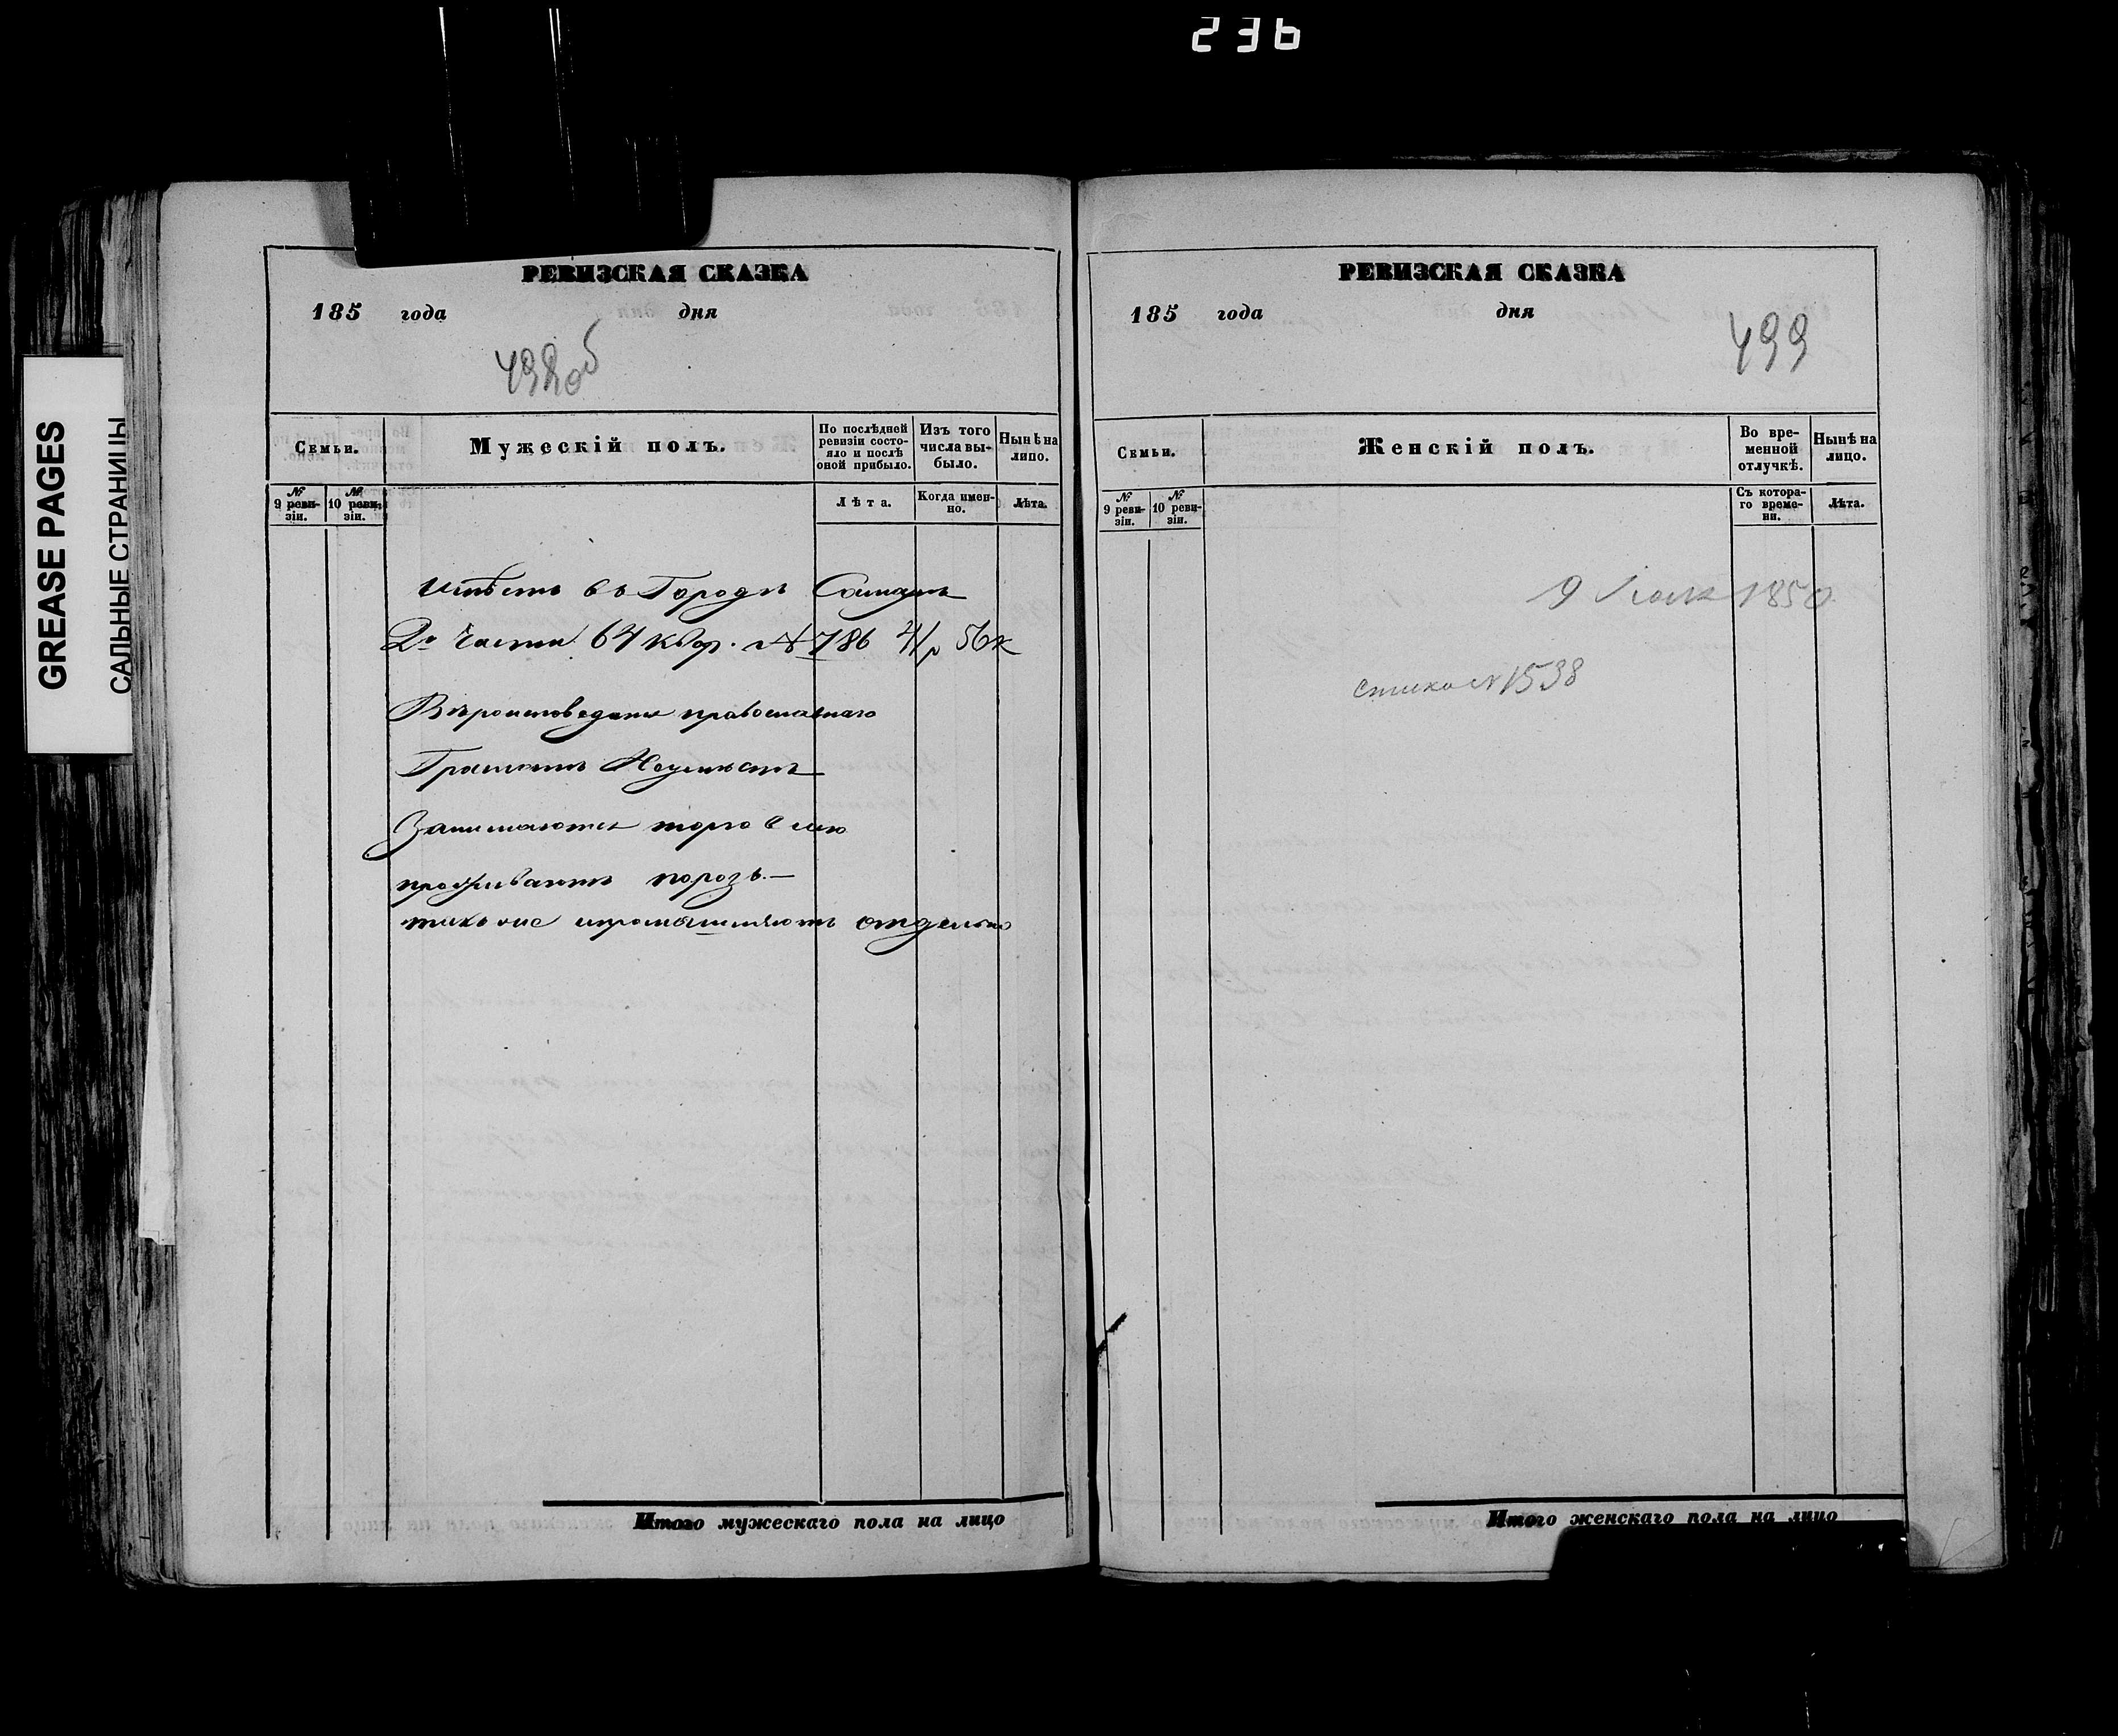 236
GREASE PAGES
САЛЬНЫЕ СТРАНИЦЫ
РЕВИЗСКАЯ СКАЗКА
185 года дня
498об
Семьи.
Мужескій полъ.
По послѣдней ревизіи состо-
яло и послѣ оной прибыло.
Изъ того числа вы-
было.
Нынѣ на лицо.
№ 9 реви-
зіи.
№ 10 реви-
зіи.
Лѣта.
Когда имен-
но.
Лѣта.
въ Городѣ
2й части 64 квар. № 786
Вѣроисповеданія православнаго
Грамотѣ
Занимаются торговлею
проживаютъ порозъ
отдельно
Итого мужескаго пола на лицо
РЕВИЗСКАЯ СКАЗКА
185 года дня
499
Семьи.
Женскій полъ.
Во вре-
менной отлучкѣ.
Нынѣ на лицо.
№ 9 реви-
зіи.
№ 10 реви-
зіи.
Съ котора-
го време-
ни.
Лѣта.
9 1850
№ 1538
Итого женскаго пола на лицо